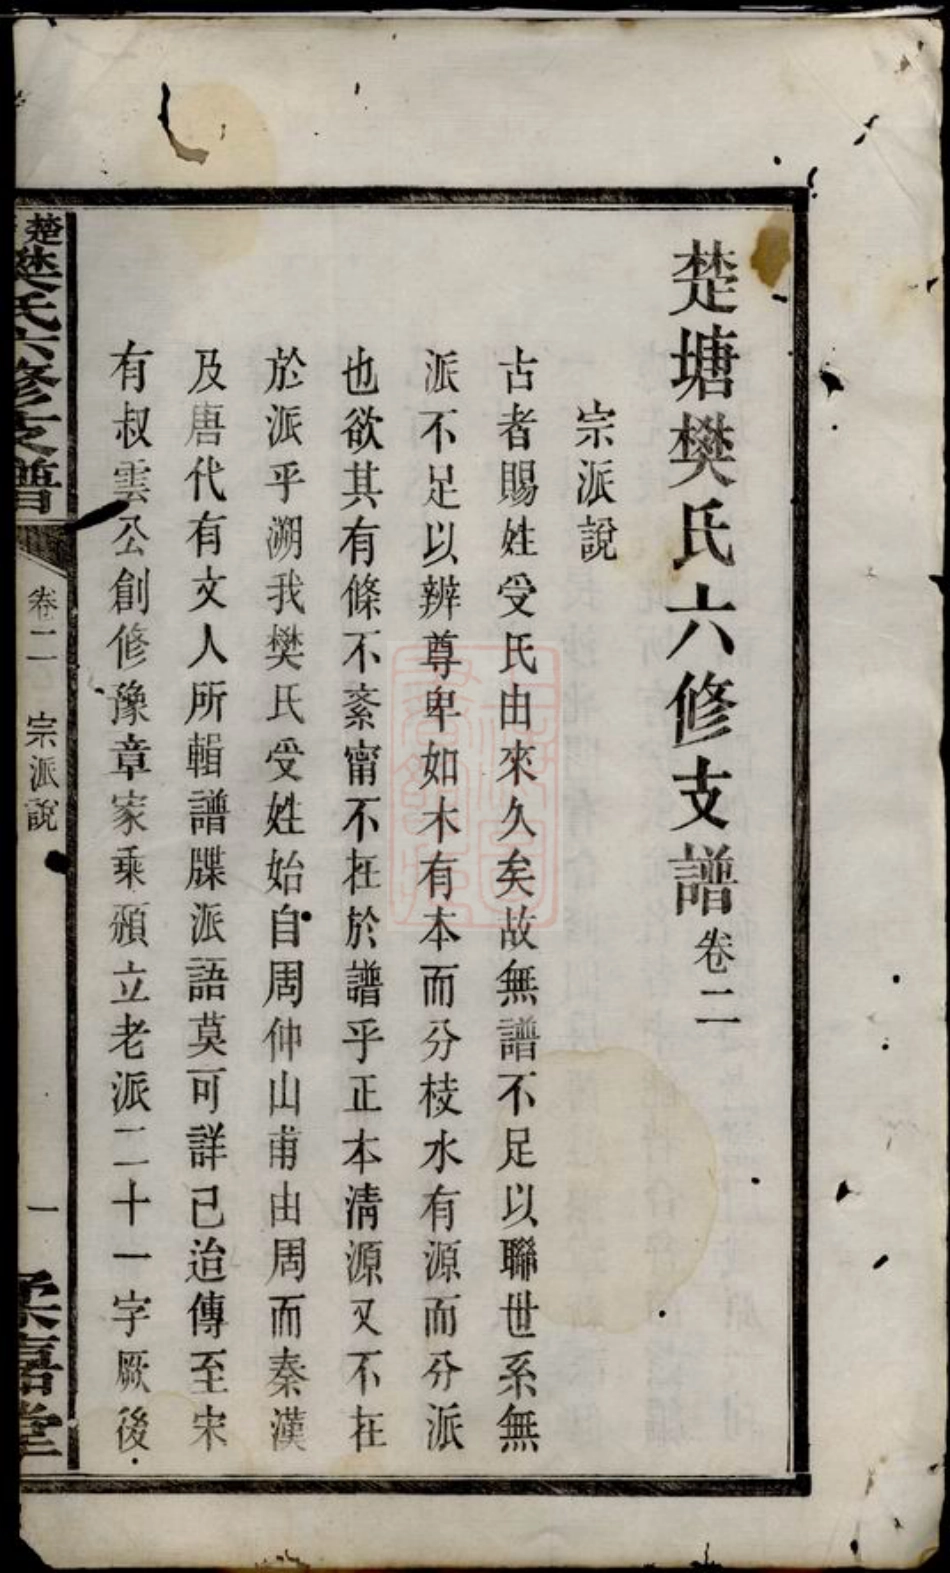 楚塘樊氏六修支譜卷二
宗派說
古者賜姓受氏由來久矣故無譜不足以聯世系無
派不足以辨尊卑如木有本而分枝水有源而分派
也欲其有條不紊甯不在於譜乎正本清源又不在
於派乎溯我樊氏受姓始自周仲山甫由周而秦漢
及唐代有文人所輯譜牒派語莫可詳已迨傳至宋
有叔雲公創修豫章家乘頒立老派二十一字厥後
楚 樊氏六修支譜
卷二 宗派說
一
嘉堂